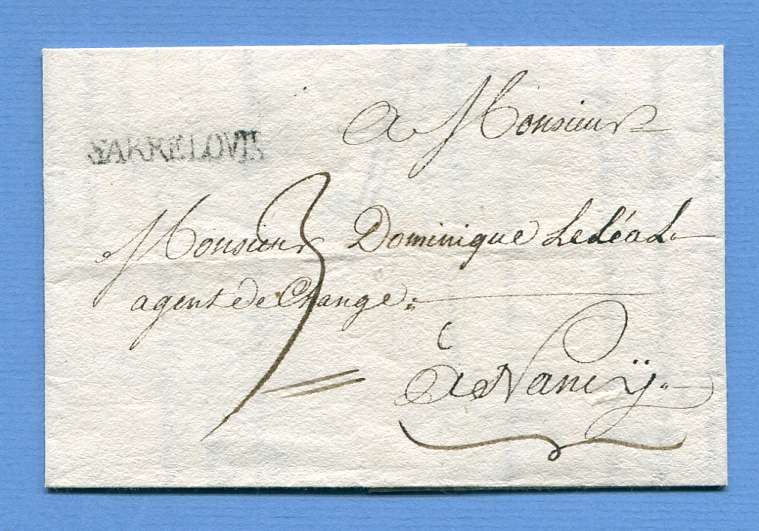 SARRELOVIS
a Monsieur
Monsieur Dominique LeLéaL
agent de Change
3
à Nancÿ